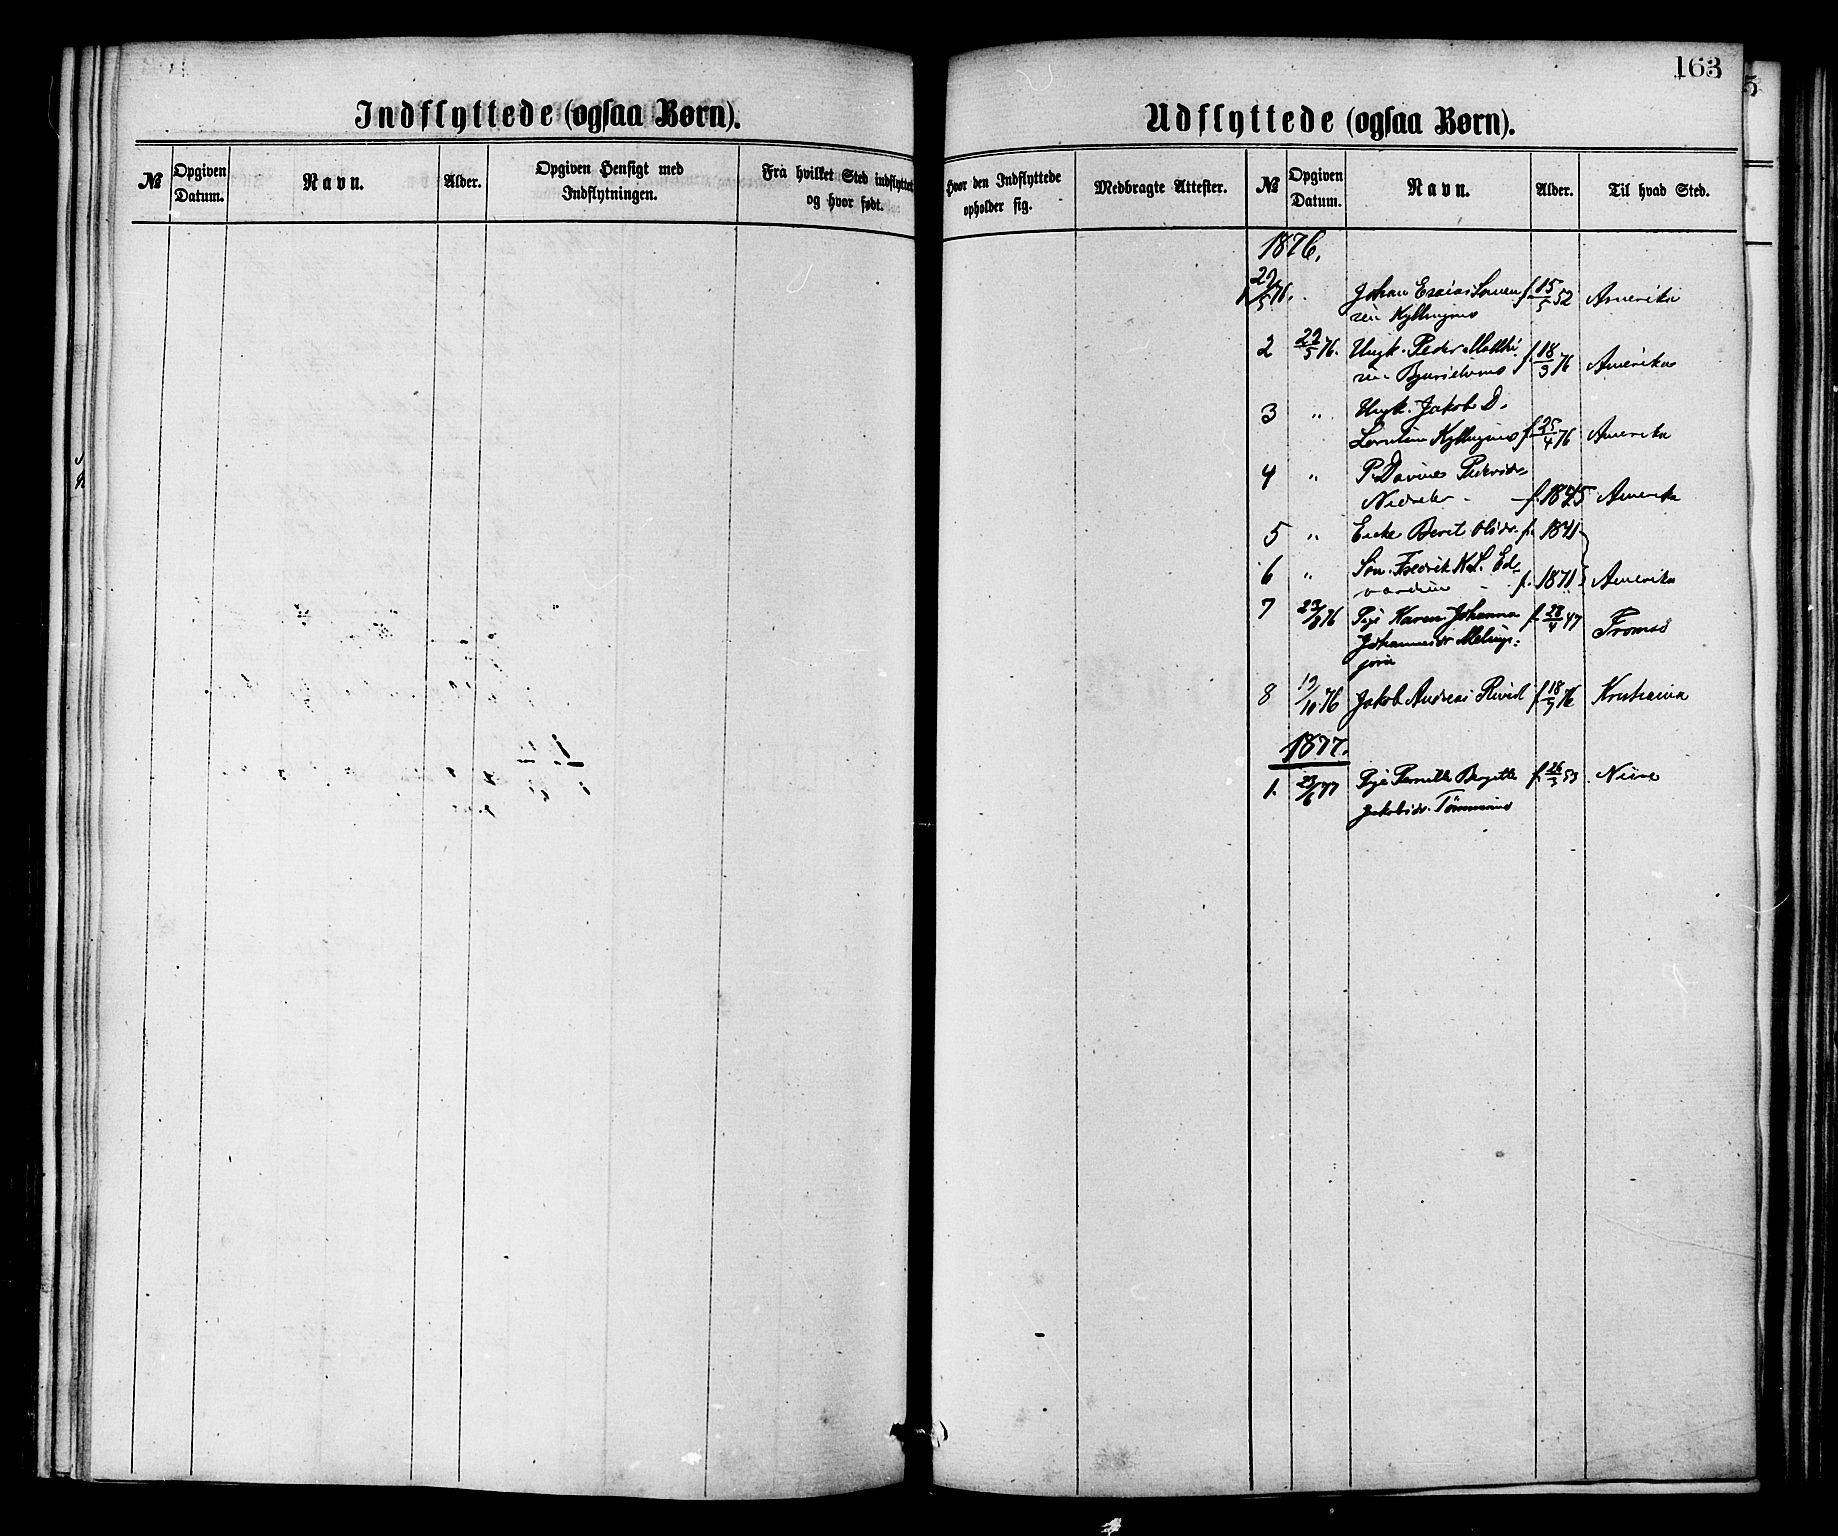 163
Indflyttede (ogsaa Børn).
Udflyttede (ogsaa Børn).
№ Opgiven Datum. Navn. Alder. Opgiven Hensigt med Indflytningen. Fra hvilket Sted indflyttet og hvor født.
Hvor den Indflyttede opholder sig. Medbragte Attester. № Opgiven Datum. Navn. Alder. Til hvad Sted.
1876.
1 29/5 76. Johan Esaias f. 15/5 52 Amerika
2 29/5 76. Ungk. Peder f. 18/3 76 Amerika
3 " Ungk. Jakob D.
f. 25/4 76 Amerika
4 " P. Pedersdr
f. 1845 Amerika
5 " Enke Beret Olsdr. f. 1841
6 " Søn Fredrik K. L. Ed-
vardsen f. 1871 Amerika
7 23/8 76 Pige Karen Johanna f. 28/4 47 Tromsø
Johannesdr
8 19/10 76 Jakob Andreas f. 18/5 76 Kristiania
1877.
1. 23/6 77 Pige Pernille Bergitte f. 26/3 53
Jakobsdr.